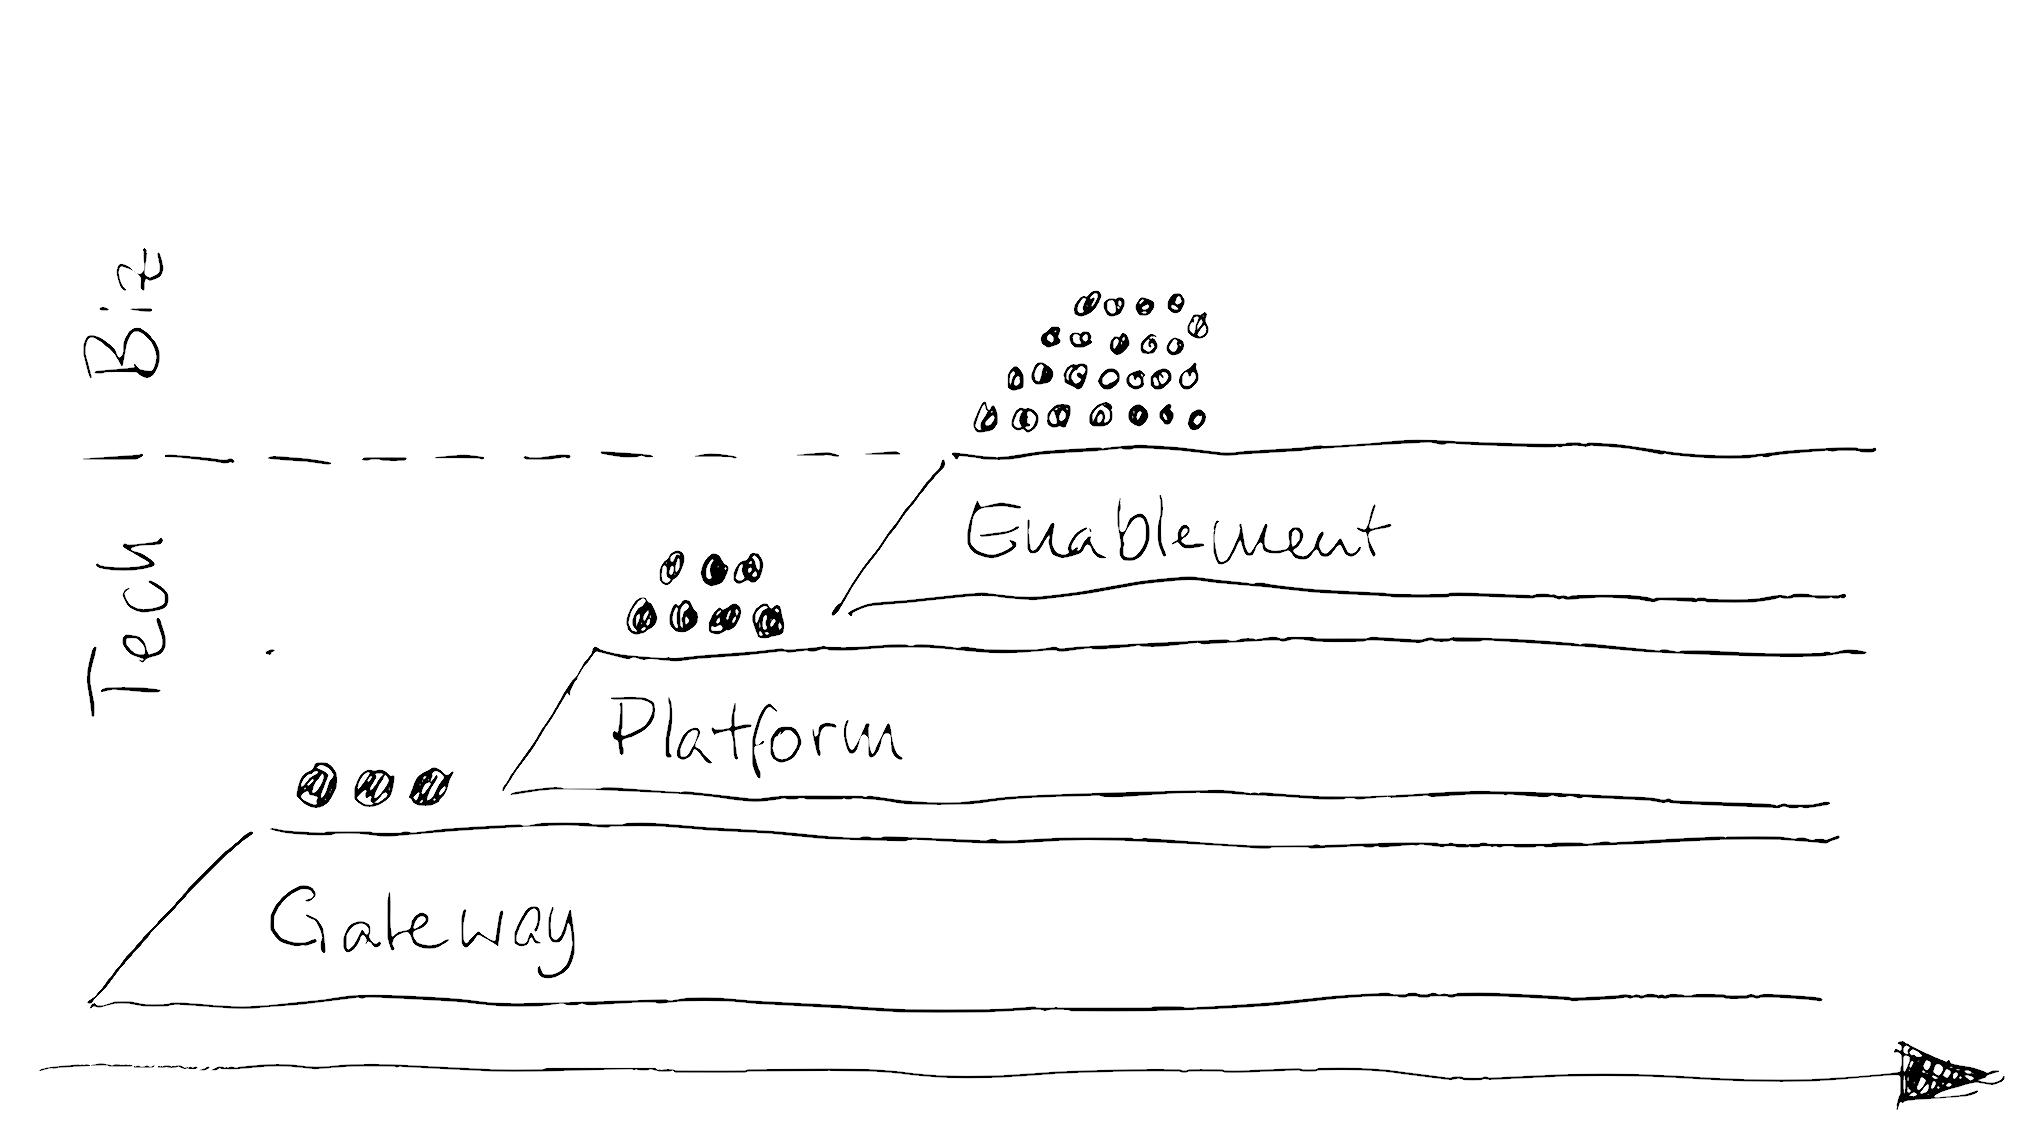 Biz
Tech
Enablement
Platform
Gateway